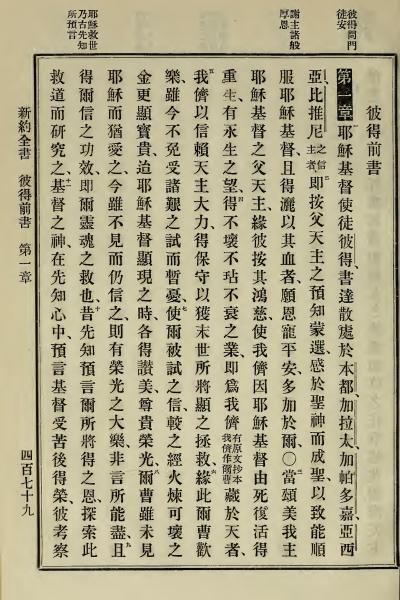 彼得問門
徒安
謝主諸般
厚恩
耶穌救世
乃古先知
所預言
彼得前書
第一章 耶穌基督使徒彼得、書達散處於本都、加拉太、加帕多嘉、亞西
亞、比推尼之信主者即按父天主之預知蒙選、感於聖神而成聖、以致能順
服耶穌基督、且得灑以其血者、願恩寵平安、多加於爾〇當頌美我主
耶穌基督之父天主、緣彼按其鴻慈、使我儕因耶穌基督由死復活、得
重生、有永生之望、得不壞不玷不衰之業、即爲我儕有原文抄本我儕作爾曹藏於天者、
我儕以信賴天主大力、得保守以獲末世所將顯之拯救、緣此爾曹歡
樂、雖今不免受諸艱之試而暫憂、使爾被試之信、較之經火煉可壞之
金更顯寶貴、迨耶穌基督顯現之時、各得讚美尊貴榮光、爾曹雖未見
耶穌而猶愛之、今雖不見而仍信之、則有榮光之大樂、非言所能盡、且
得爾信之功效、即爾靈魂之救也、昔先知預言爾所將得之恩、探索此
救道而研究之、基督之神在先知心中、預言基督受苦後得榮、彼考察
新約全書 彼得前書 第一章 四百七十九